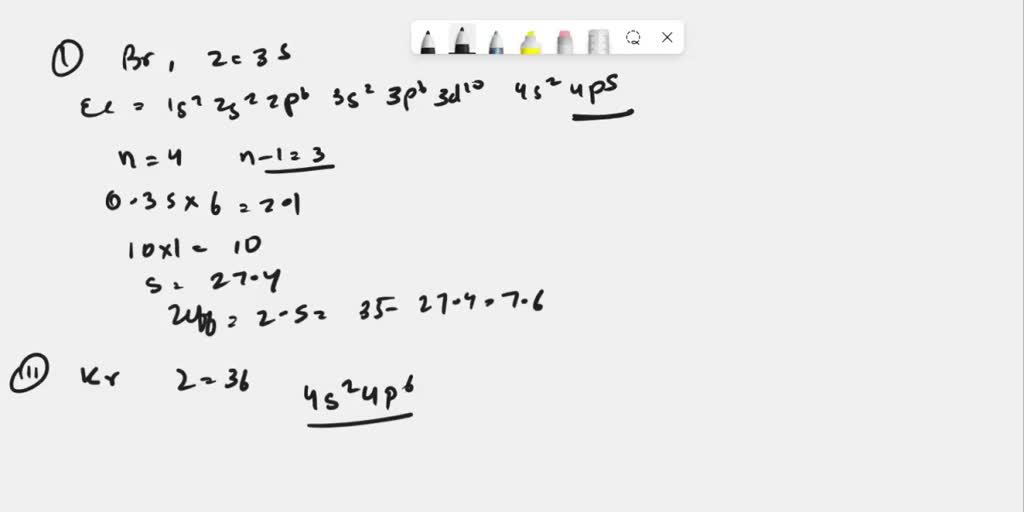 ① Br, Z = 35
EC = 1s² 2s² 2p⁶ 3s² 3p⁶ 3d¹⁰ 4s² 4p⁵
n = 4 n-1 = 3
0.35 × 6 = 2.1
10×1 = 10
S = 27.4
Zeff = Z - S = 35 - 27.4 = 7.6
(III) Kr Z = 36 4s² 4p⁶